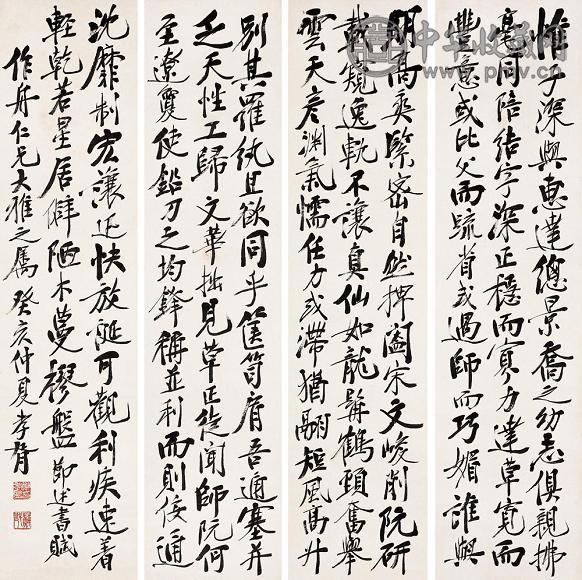 惟子深與惠達總景喬之幼志俱親拂
同陪結字深正穩而寡力達草寬而
豐意或比父而疏省或過師而巧媚誰與
高爽緊密自然捭闔宋文峻削阮研
載窺逸軌不讓真仙如龍髯鶴頸奮舉
雲天彥淵氣懦任力或滯猶翮短風高升
別其羅紈且欲同乎篋笥肩吾通塞并
乏天性工歸文華拙見草正徒聞師阮何
至遼敻使鉛刀之均鋒稱並利而則佞通
沈靡制宏瀼近快放誕可觀利疾速着
輕乾若星居僻陋不夢樛盤節述書賦
作舟仁兄大雅之屬癸亥仲夏孝胥
中华收藏网
www.pmv.cn